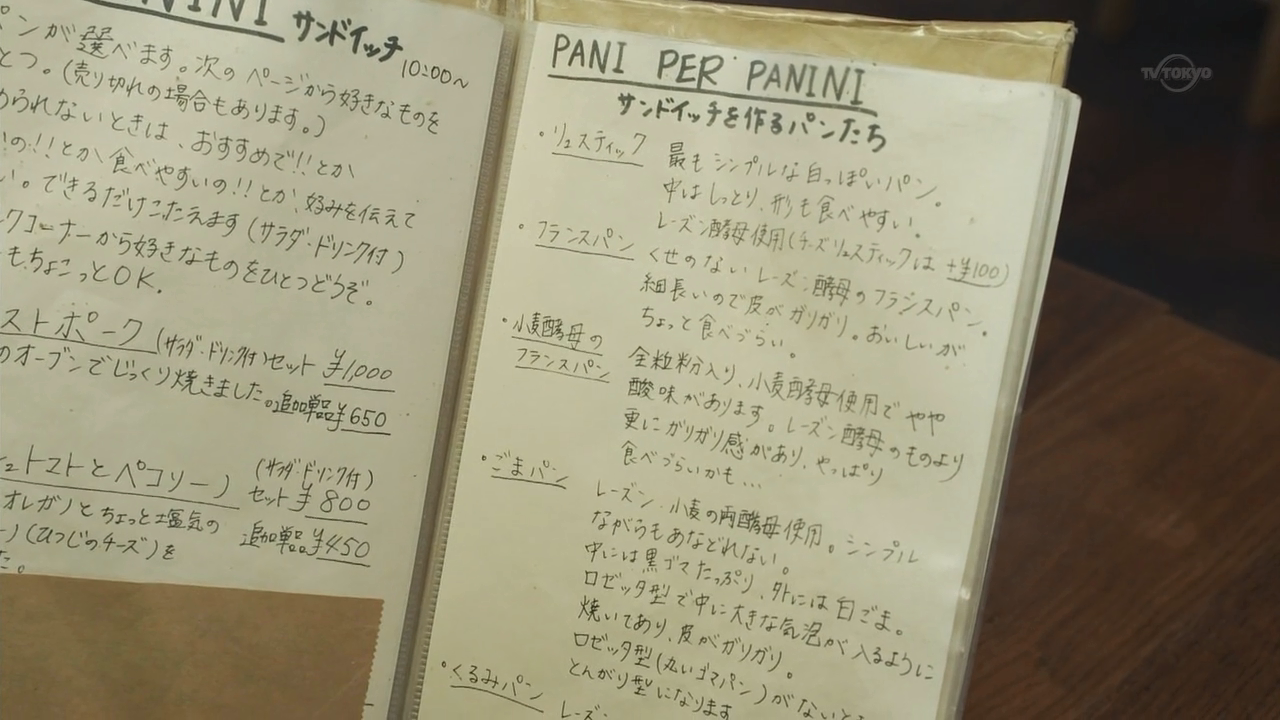 PANINI サンドイッチ 10:00～
パンが選べます。次のページから好きなものを
とつ。(売り切れの場合もあります。)
められないときは、おすすめで!!とか
いの!!とか、食べやすいの!!とか、好みを伝えて
い。できるだけこたえます(サラダ・ドリンク付)
クコーナーから好きなものをひとつどうぞ。
もちょこっとOK.
ストポーク(サラダ・ドリンク付)セット ¥1,000
のオーブンでじっくり焼きました。追加単品¥650
ュトマトとペコリーノ (サラダ・ドリンク付)
セット ¥800
オレガノとちょっと塩気の 追加単品¥450
ーノ(ひつじのチーズ)を
た。
PANI PER PANINI
サンドイッチを作るパンたち
・リュスティック 最もシンプルな白っぽいパン。
中はしっとり、形も食べやすい。
レーズン酵母使用(チーズリュスティックは +¥100)
・フランスパン くせのないレーズン酵母のフランスパン。
細長いので皮がガリガリ。おいしいが
ちょっと食べづらい。
・小麦酵母の
フランスパン 全粒粉入り、小麦酵母使用でやや
酸味があります。レーズン酵母のものより
更にガリガリ感があり、やっぱり
食べづらいかも...
・ごまパン レーズン・小麦の両酵母使用。シンプル
ながらもあなどれない。
中には黒ゴマたっぷり、外には白ごま。
ロゼッタ型で中に大きな気泡が入るように
焼いてあり、皮がガリガリ。
ロゼッタ型(丸いゴマパン)がないと
とんがり型になります
・くるみパン レーズン
TV TOKYO